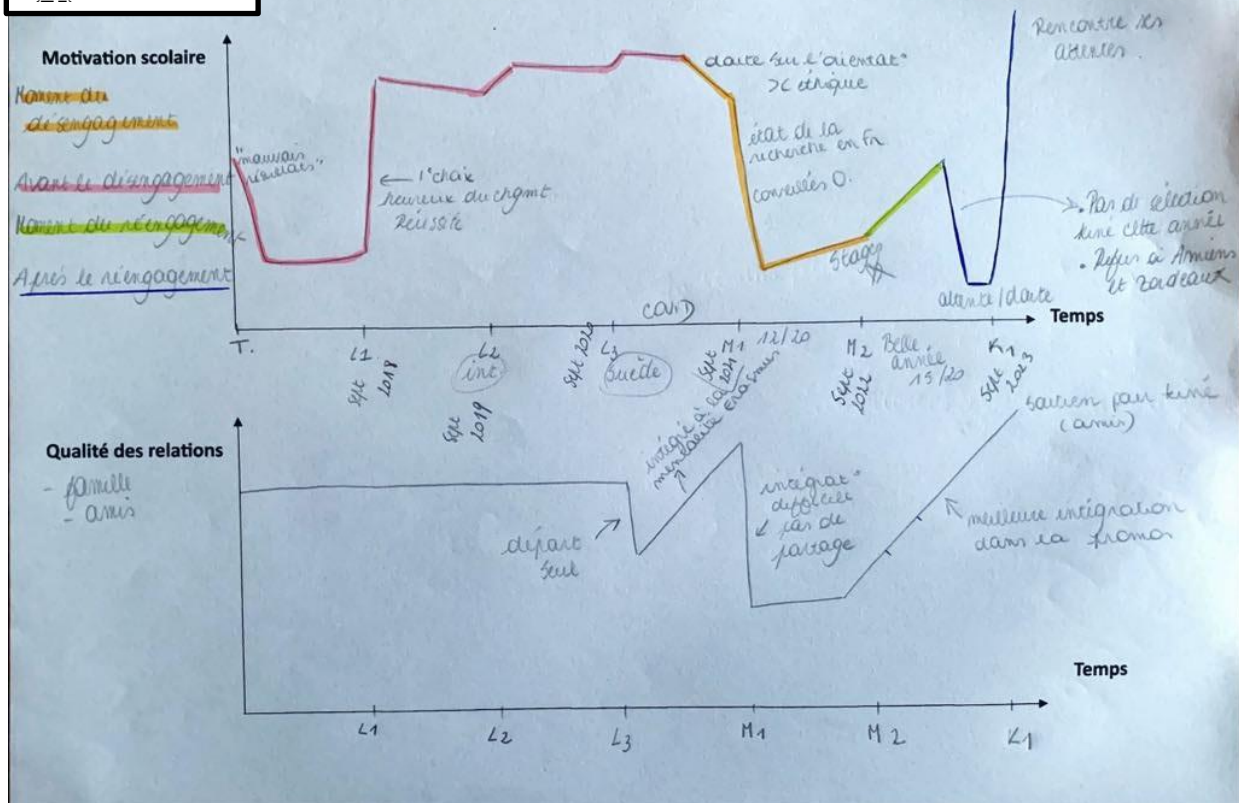 Motivation scolaire
Moment du
désengagement
Avant le désengagement
Moment du réengagement
Après le réengagement
"mauvais
résultats"
← 1er choix
heureux du chgmt
Réussite
doute sur l'orientat°
éthique
état de la
recherche en Fr
conseillés O.
Stages
Rencontre ses
attentes.
• Pas de sélection
kiné cette année
• Refus à Amiens
et Bordeaux
attente/doute
COVID
Temps
T.
L1
Sept 2018
L2
int
Sept 2019
Sept 2020
L3
Suède
Sept 2021
M1
12/20
M2
Sept 2022
Belle
année
15/20
K1
Sept 2023
Qualité des relations
- famille
- amis
départ
seul
intégré à la
mentalité Erasmus
intégrat°
difficile
pas de
partage
meilleure intégration
dans la promo
soutien par kiné
(amis)
Temps
L1
L2
L3
M1
M2
K1